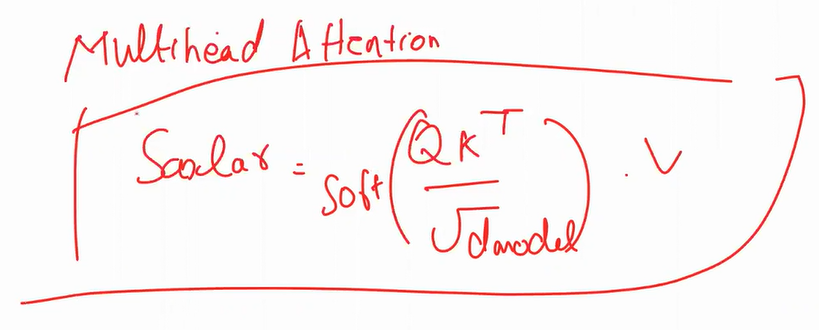 Multihead Attention
Scalar = soft(QK^T / √dmodel) . V